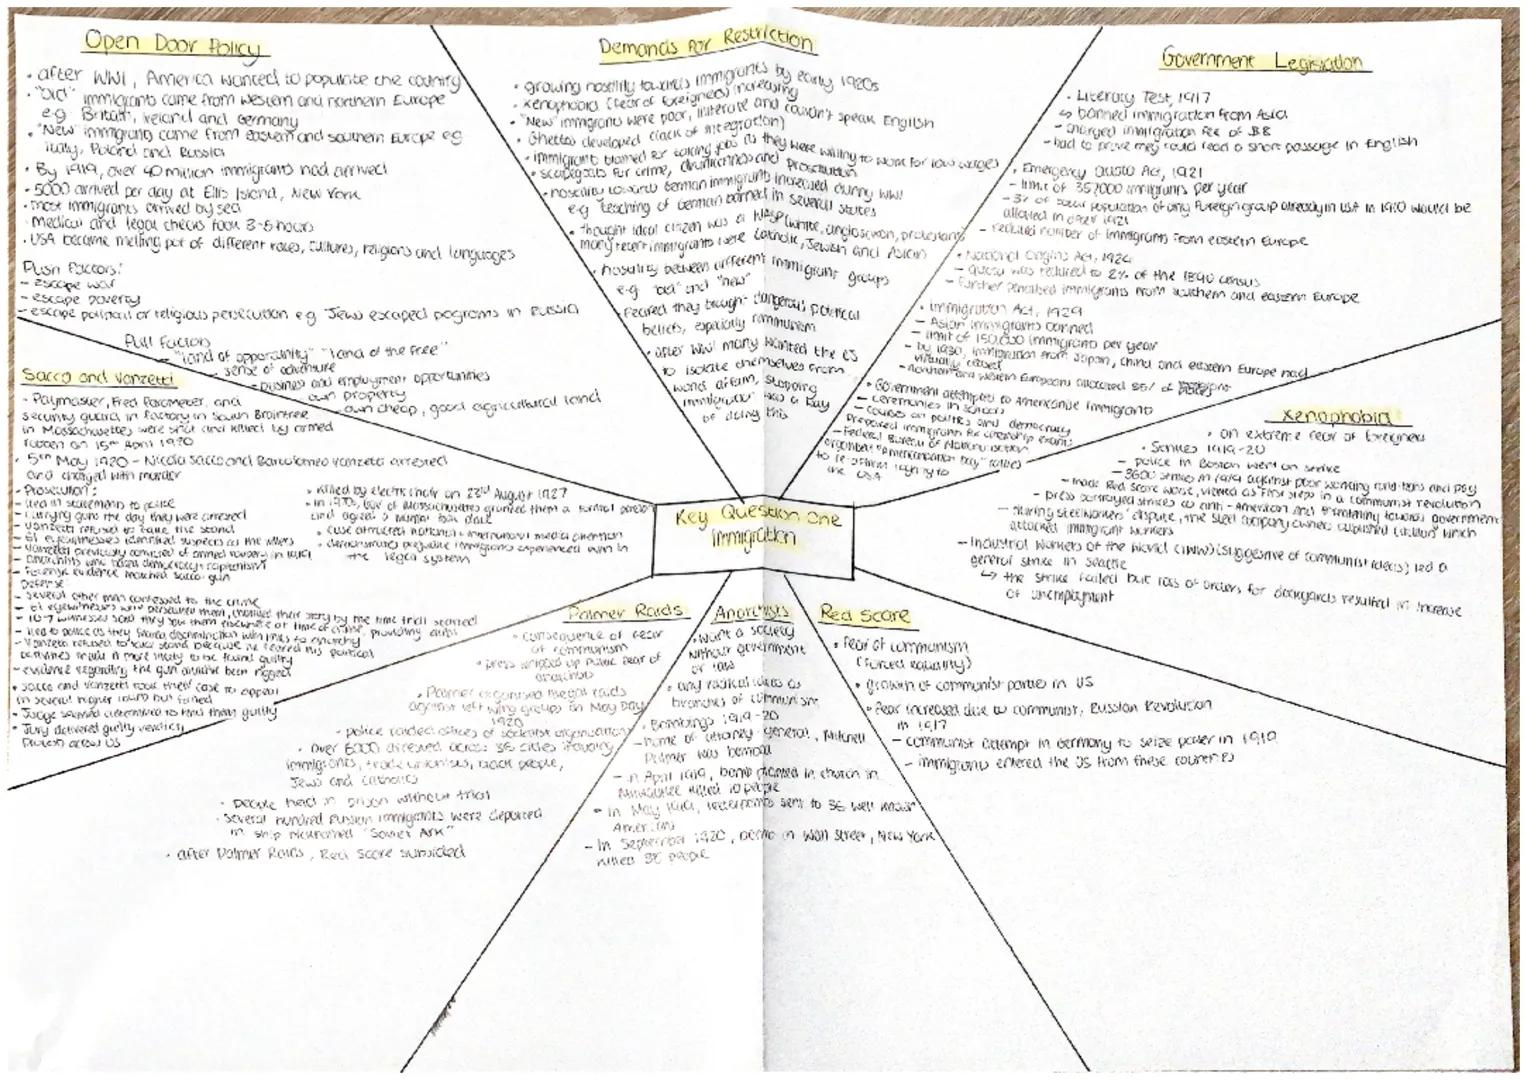 Open Door Policy
• after WW1, America wanted to populate the country
• "old" immigrants came from western and northern Europe
e.g. Britain, Ireland and Germany
• "New" immigrants came from eastern and southern Europe eg
Italy, Poland and Russia
• By 1919, over 40 million immigrants had arrived
- 5000 arrived per day at Ellis Island, New York
• most immigrants arrived by sea
medical and legal checks took 3-5 hours
• USA became melting pot of different races, cultures, religions and languages
Push factors:
- escape war
- escape poverty
- escape political or religious persecution eg Jews escaped pogroms in Russia
Pull factors
- "land of opportunity" "land of the free"
- sense of adventure
- business and employment opportunities
own property
- own cheap, good agricultural land
Demands for Restriction
• growing hostility towards immigrants by early 1920s
• xenophobia (fear of foreigners) increasing
• "New" immigrants were poor, illiterate and couldn't speak English
• Ghettos developed (lack of integration)
• immigrants blamed for taking jobs as they were willing to work for low wages
• scapegoats for crime, drunkenness and prostitution
• hostility towards German immigrants increased during WW1
e.g. teaching of German banned in several states
• thought ideal citizen was a WASP (white, anglo saxon, protestant)
many recent immigrants were Catholic, Jewish and Asian
• hostility between different immigrant groups
e.g. "old" and "new"
• feared they brought dangerous political
beliefs, especially communism
• after WW1 many wanted the US
to isolate themselves from
world affairs, stopping
immigration was a way
of doing this
Government Legislation
• Literacy Test, 1917
↳ banned immigration from Asia
- charged immigration fee of $8
- had to prove they could read a short passage in English
• Emergency Quota Act, 1921
- limit of 357000 immigrants per year
- 3% of total population of any foreign group already in USA in 1910 would be
allowed in after 1921
- reduced number of immigrants from eastern Europe
• National Origins Act, 1924
- quota was reduced to 2% of the 1890 census
- further penalised immigrants from southern and eastern Europe
• Immigration Act, 1929
- Asian immigrants banned
- limit of 150,000 immigrants per year
- by 1930, immigration from Japan, China and eastern Europe had
virtually ceased
- northern and western Europeans allocated 85% of places
• Government attempted to Americanise immigrants
- ceremonies in schools
- courses on politics and democracy
prepared immigrants for citizenship exams
- Federal Bureau of Naturalisation
organised "Americanization Day" rallies
to reaffirm loyalty to
the USA
Xenophobia
• an extreme fear of foreigners
• Strikes 1919-20
- police in Boston went on strike
- 3600 strikes in 1919 against poor working conditions and pay
- made Red Scare worse, viewed as first step in a communist revolution
- press portrayed strikes as anti-American and threatening towards government
- during steelworkers' dispute, the steel company owners published which
attacked immigrant workers
- Industrial Workers of the World (IWW) (suggestive of communist ideas) led a
general strike in Seattle
↳ the strike failed but loss of orders for dockyards resulted in increase
of unemployment
Sacco and Vanzetti
• Paymaster, Fred Parmenter, and
security guard in factory in South Braintree
in Massachusettes were shot and killed by armed
robbers on 15th April 1920
• 5th May 1920 - Nicola Sacco and Bartolomeo Vanzetti arrested
and charged with murder
• Prosecution:
- lied in statements to police
- carrying guns the day they were arrested
- Vanzetti refused to take the stand
- 61 eyewitnesses identified suspects as the killers
- Vanzetti previously convicted of armed robbery in
- anarchists who hated democracy + capitalism
- forensic evidence matched Sacco gun
Defense
- several other men confessed to the crime
- 61 eyewitnesses changed their story by the time trial started
- 107 witnesses said they saw them elsewhere at time of crime, providing alibi
- lied to police as they feared discrimination with links to anarchy
- Vanzetti refused to take stand because he feared his political
activities made it more likely to be found guilty
- evidence regarding the gun could've been rigged
• Sacco and Vanzetti took their case to appeal
in several higher courts but failed
• Judge seemed determined to find them guilty
• Jury delivered guilty verdict,
protests across US
• killed by electric chair on 23rd August 1927
• in 1970s, Gov of Massachusettes granted them a formal pardon
and agreed a mistrial took place
• case attracted national + international media attention
• demonstrated prejudice immigrants experienced within
the legal system
Key Question One
Immigration
Palmer Raids
• consequence of fear
of communism
• press whipped up public fear of
anarchists
• Palmer organised illegal raids
against left wing groups on May Day
1920
- police raided offices of socialist organisations
• over 6000 arrested across 36 cities including
immigrants, trade unionists, black people,
Jews and catholics
• people held in prison without trial
• several hundred Russian immigrants were deported
in ship nicknamed "Soviet Ark"
• after Palmer Raids, Red Scare subsided
Anarchists
• want a society
without government
or law
• any radical ideas as
branches of communism
• Bombings 1919-20
- home of attorney-general, Mitchell
Palmer was bombed
- in April 1919, bomb planted in church in
Milwaukee killed 10 people
- in May 1919, letterbombs sent to 36 well known
Americans
- In September 1920, bomb in Wall Street, New York
killed 38 people
Red Scare
• fear of communism
(forced equality)
• growth of communist parties in US
• fear increased due to communist, Russian Revolution
in 1917
- communist attempt in Germany to seize power in 1919
- immigrants entered the US from these countries